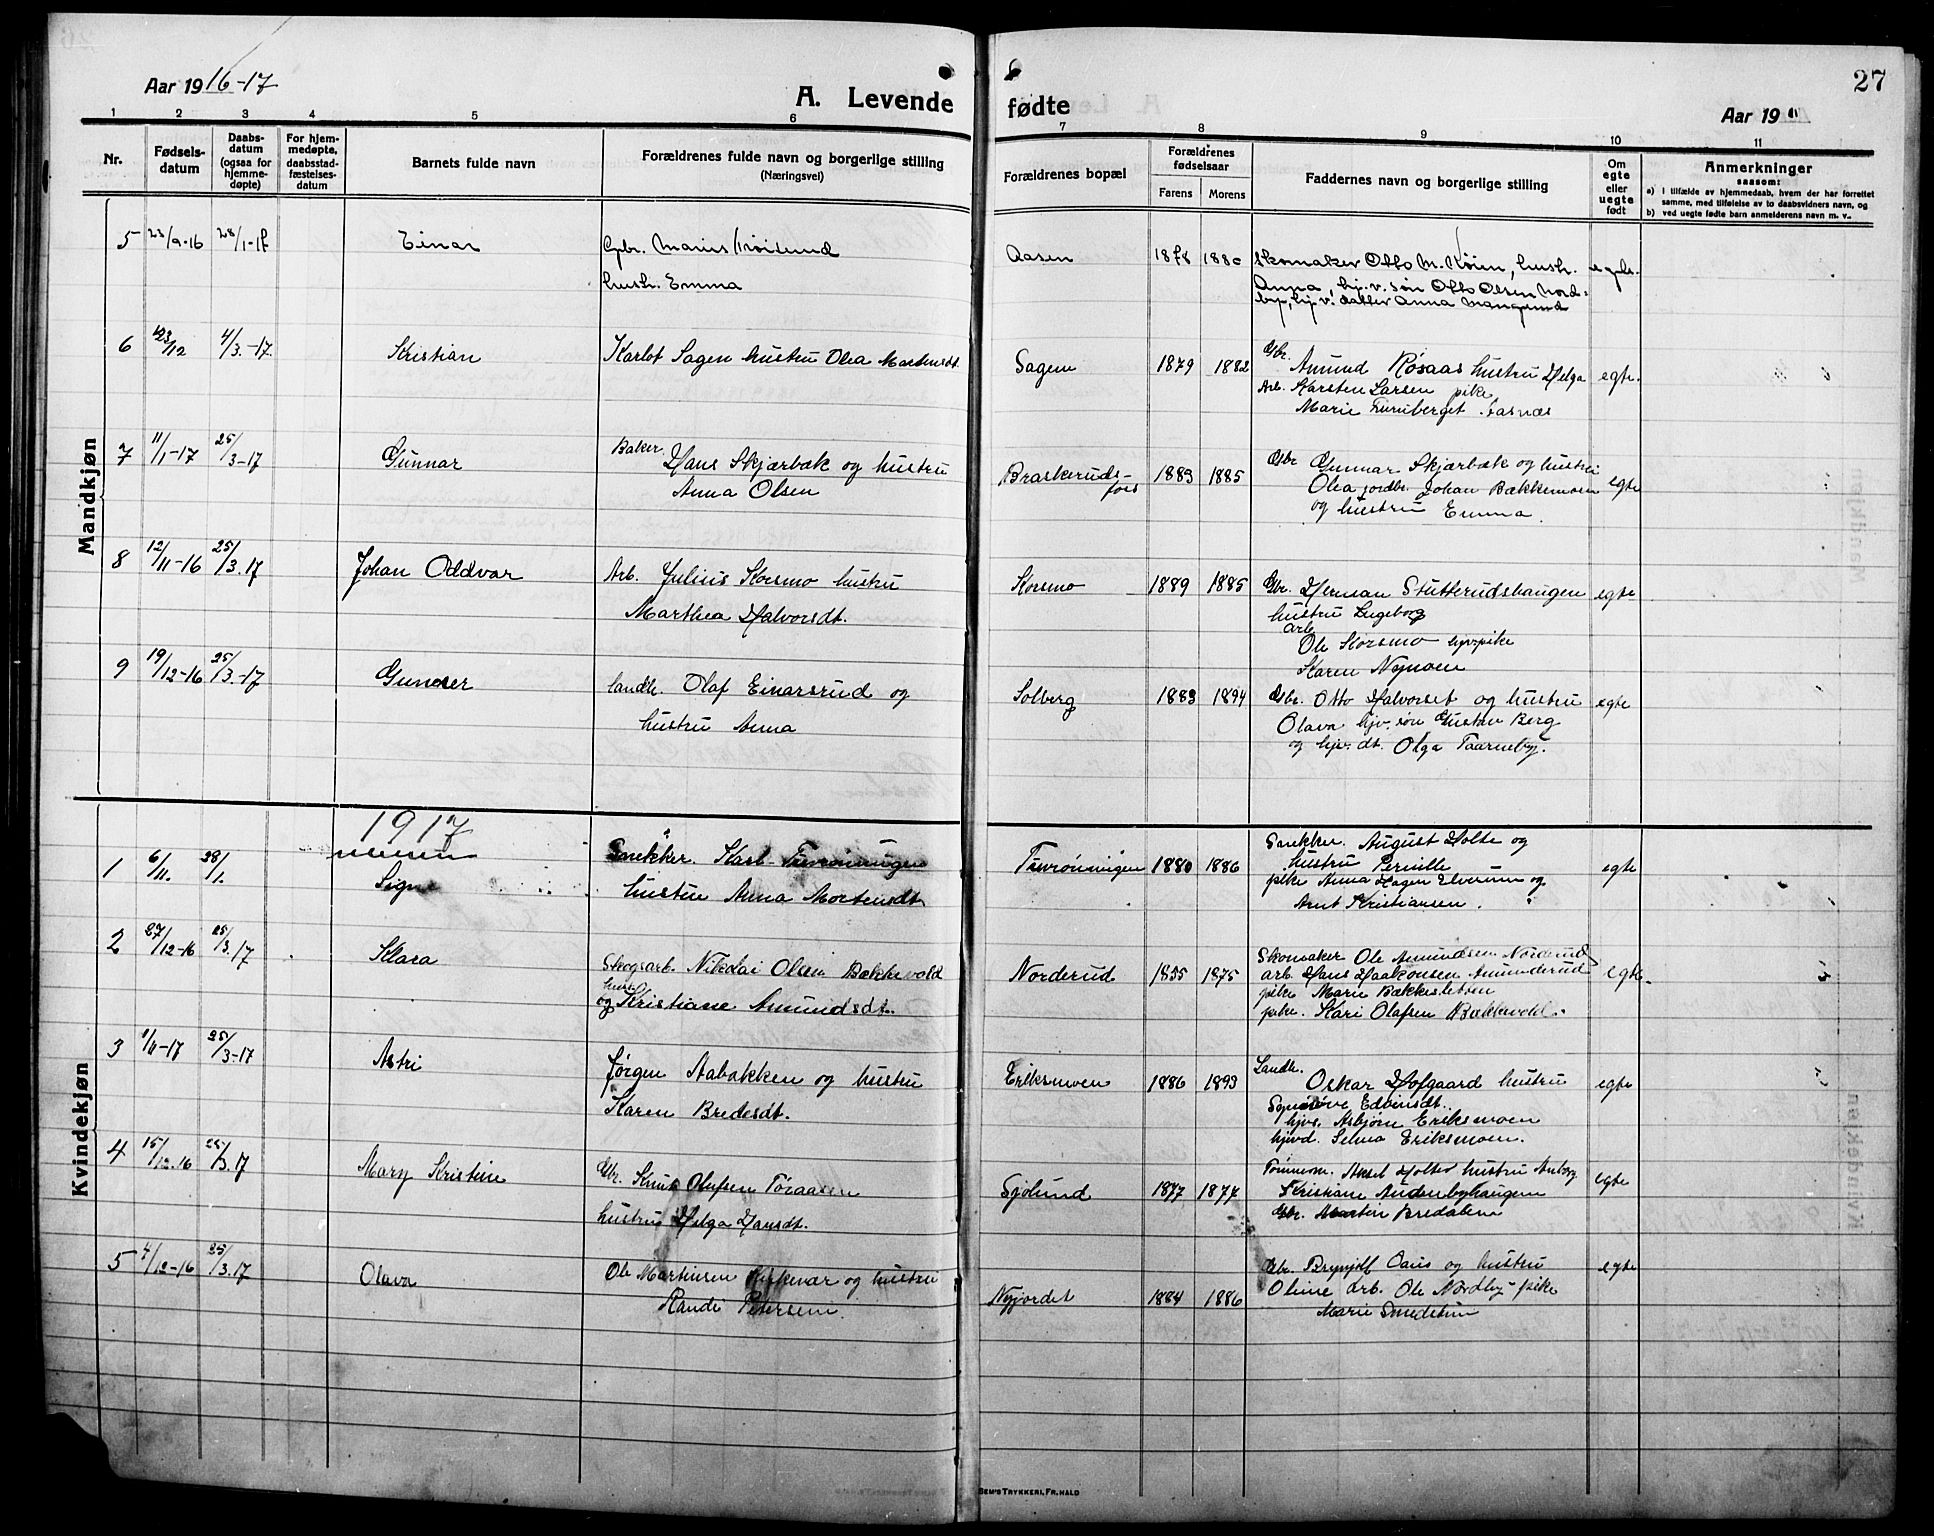 Aar 1916-17
A. Levende fødte
27
Aar 19
1 2 3 4 5 6 7 8 9 10 11
Nr.
Fødsels-
datum
Daabs-
datum
(ogsaa for
hjemme-
døpte)
For hjem-
medøpte,
daabsstad-
fæstelses-
datum
Barnets fulde navn
Forældrenes fulde navn og borgerlige stilling
(Næringsvei)
Forældrenes bopæl
Forældrenes
fødselsaar
Farens Morens
Faddernes navn og borgerlige stilling
Om
egte
eller
uegte
født
Anmerkninger
saasom:
a) i tilfælde av hjemmedaab, hvem der har forrettet
samme, med tilføielse av to daabsvidners navn, og
b) ved uegte fødte barn anmelderens navn m. v.
Mandkjøn
5 23/9-16 28/1-17 Einar Gbr. Marius
hustr. Emma
Aasen 1878 1880
Skomaker Otto M. Køien, hustr.
Anna, hj.v. søn Otto Olsen Nord-
by, hj.v. datter Anna Mangrud
6 23/12 4/3.-17. Kristian Karlot Sagen hustru Olea Martinsdt.
Sagen 1879 1882
Gbr. Amund Røsaas hustru Helga
Arb. Karsten Larsen pike
Marie Furuberget
egte.
7 11/1-17 25/3-17 Gunnar Baker Hans Skjærbæk og hustru
Anna Olsen
Braskeruds-
fos 1883 1885
Gbr Gunnar Skjærbæk og hustru
Olea jordbr. Johan Bækkemoen
og hustru Emma.
egte
8 12/11-16 25/3.17 Johan Oddvar Arb. Julius Korsmo hustru
Marthea Halvorsdt.
Korsmo 1889 1885
Gbr. Herman Stutterudshaugen
hustru Ingeborg
arb.
Ole Korsmo hjv.pike
Karen Nymoen
egte
9 19/12-16 25/3.-17 Gunder landh. Olaf Einarsrud og
hustru Anna
Solberg 1883 1894
Gbr. Otto Halvorset og hustru
Olava hjv. søn Gustav Berg
og hjv. dt. Olga Taarneby.
egte
Kvindekjøn
1917
1 6/11. 28/1. Signe Snekker. Karl
hustru Anna Mortensdt.
1880 1886
Snekker. August Holte og
hustru Pernille
pike Anna Hagen Elverum og
Arnt Kristiansen.
egte
2 27/12-16 25/3.17 Klara Skogsarb. Nikolai Olsen Bækkevold
hustr.
og Kristiane Amundsdt.
Norderud 1875
Skomaker Ole Amundsen Norderud
arb. Hans Haakonsen Amunderud
pike Marie Bækkesletten
pike. Kari Olafsen Bækkevold.
egte.
3 25/3-17 Astri Jørgen Aabakken og hustru
Karen Bredesdt.
Eriksmoen 1886 1893
Landh.
Oskar Hofgaard hustru
Synnøve Edvinsdt.
hjvs. Asbjørn Eriksmoen
hjvd. Selma Eriksmoen.
egte
4 15/12.16 25/3.17 Mary Kristine Gbr. Knut Olafsen Toraasen
hustru Helga Hansdt.
Sjølund 1877 1874
Aksel Holter hustru
Kristiane Audenbyhaugen
Gbr. Morten Bredalen
egte
5 4/12-16 25/3.17 Olava Ole Martinsen og hustru
Randi Petersen.
Nyjordet 1884 1886
Gbr. Brynjolf og hustru
Oline arb. Ole Nordby pike
Marie Smedstun
egte
BEM'S TRYKKERI, FR.HALD